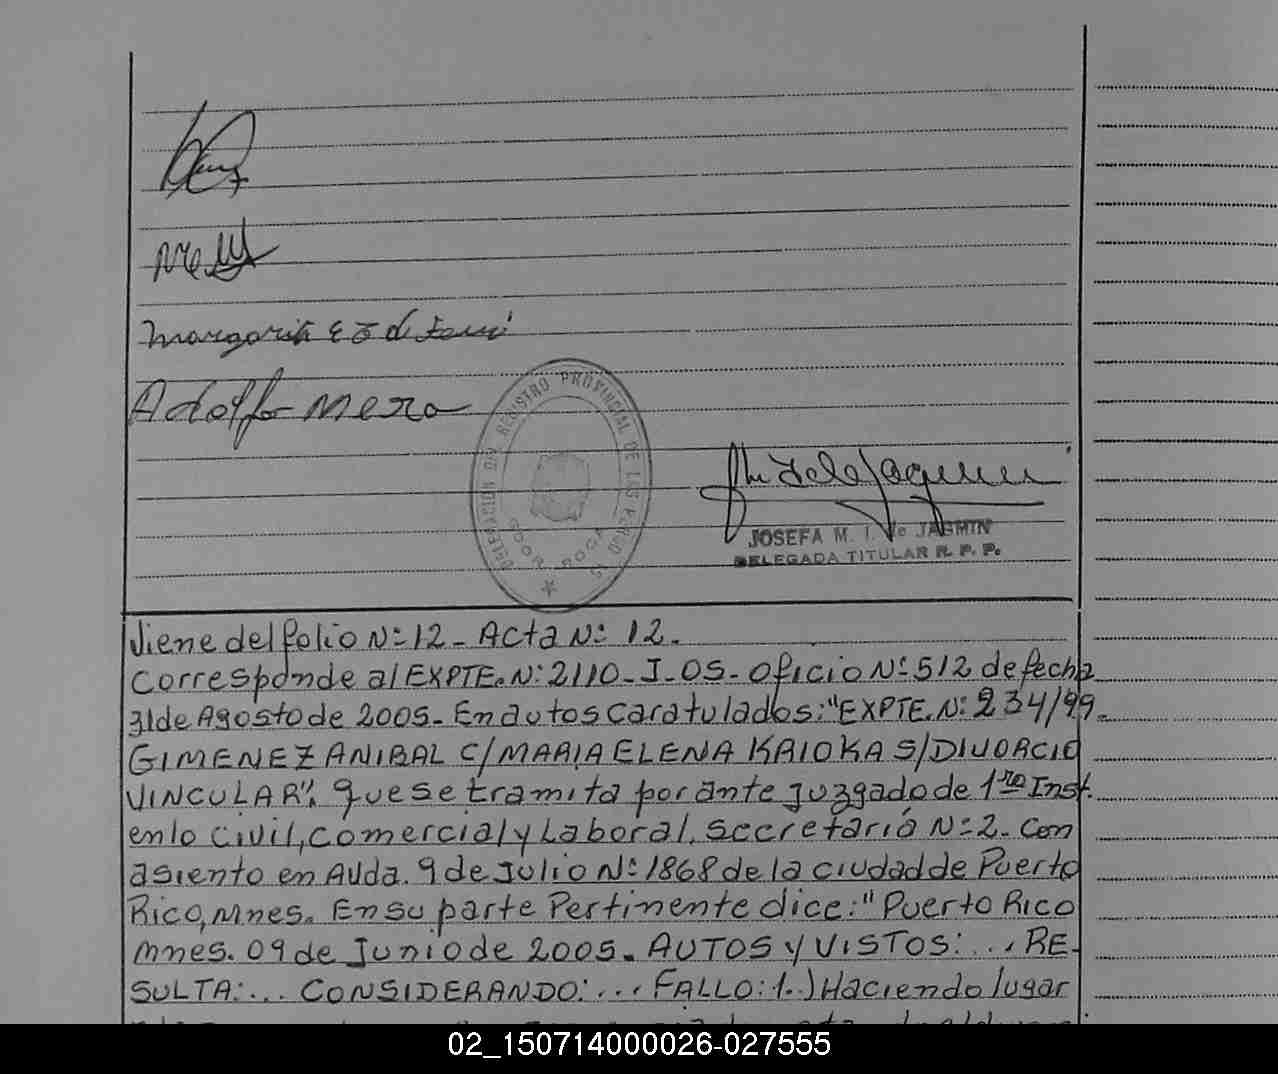 Margarita
Adolfo Mera
DELEGACION DEL REGISTRO PROVINCIAL DE LAS PERSONAS
JOSEFA M. I. de JASMIN
DELEGADA TITULAR R. P. P.
Viene del folio Nº 12 - Acta Nº 12.
Corresponde al EXPTE. Nº: 2110-J-05- Oficio Nº 512 de fecha
31 de Agosto de 2005.- En autos caratulados: "EXPTE. Nº: 234/99.
GIMENEZ ANIBAL C/ MARIA ELENA KAIOKA S/ DIVORCIO
VINCULAR", que se tramita por ante Juzgado de 1ra Inst.
en lo Civil, Comercial y Laboral, Secretaría Nº 2- Con
asiento en Avda. 9 de Julio Nº 1868 de la ciudad de Puerto
Rico, Mnes. En su parte Pertinente dice: "Puerto Rico
Mnes. 09 de Junio de 2005. AUTOS Y VISTOS: ... RE-
SULTA: ... CONSIDERANDO: ... FALLO: 1.) Haciendo lugar
02_150714000026-027555